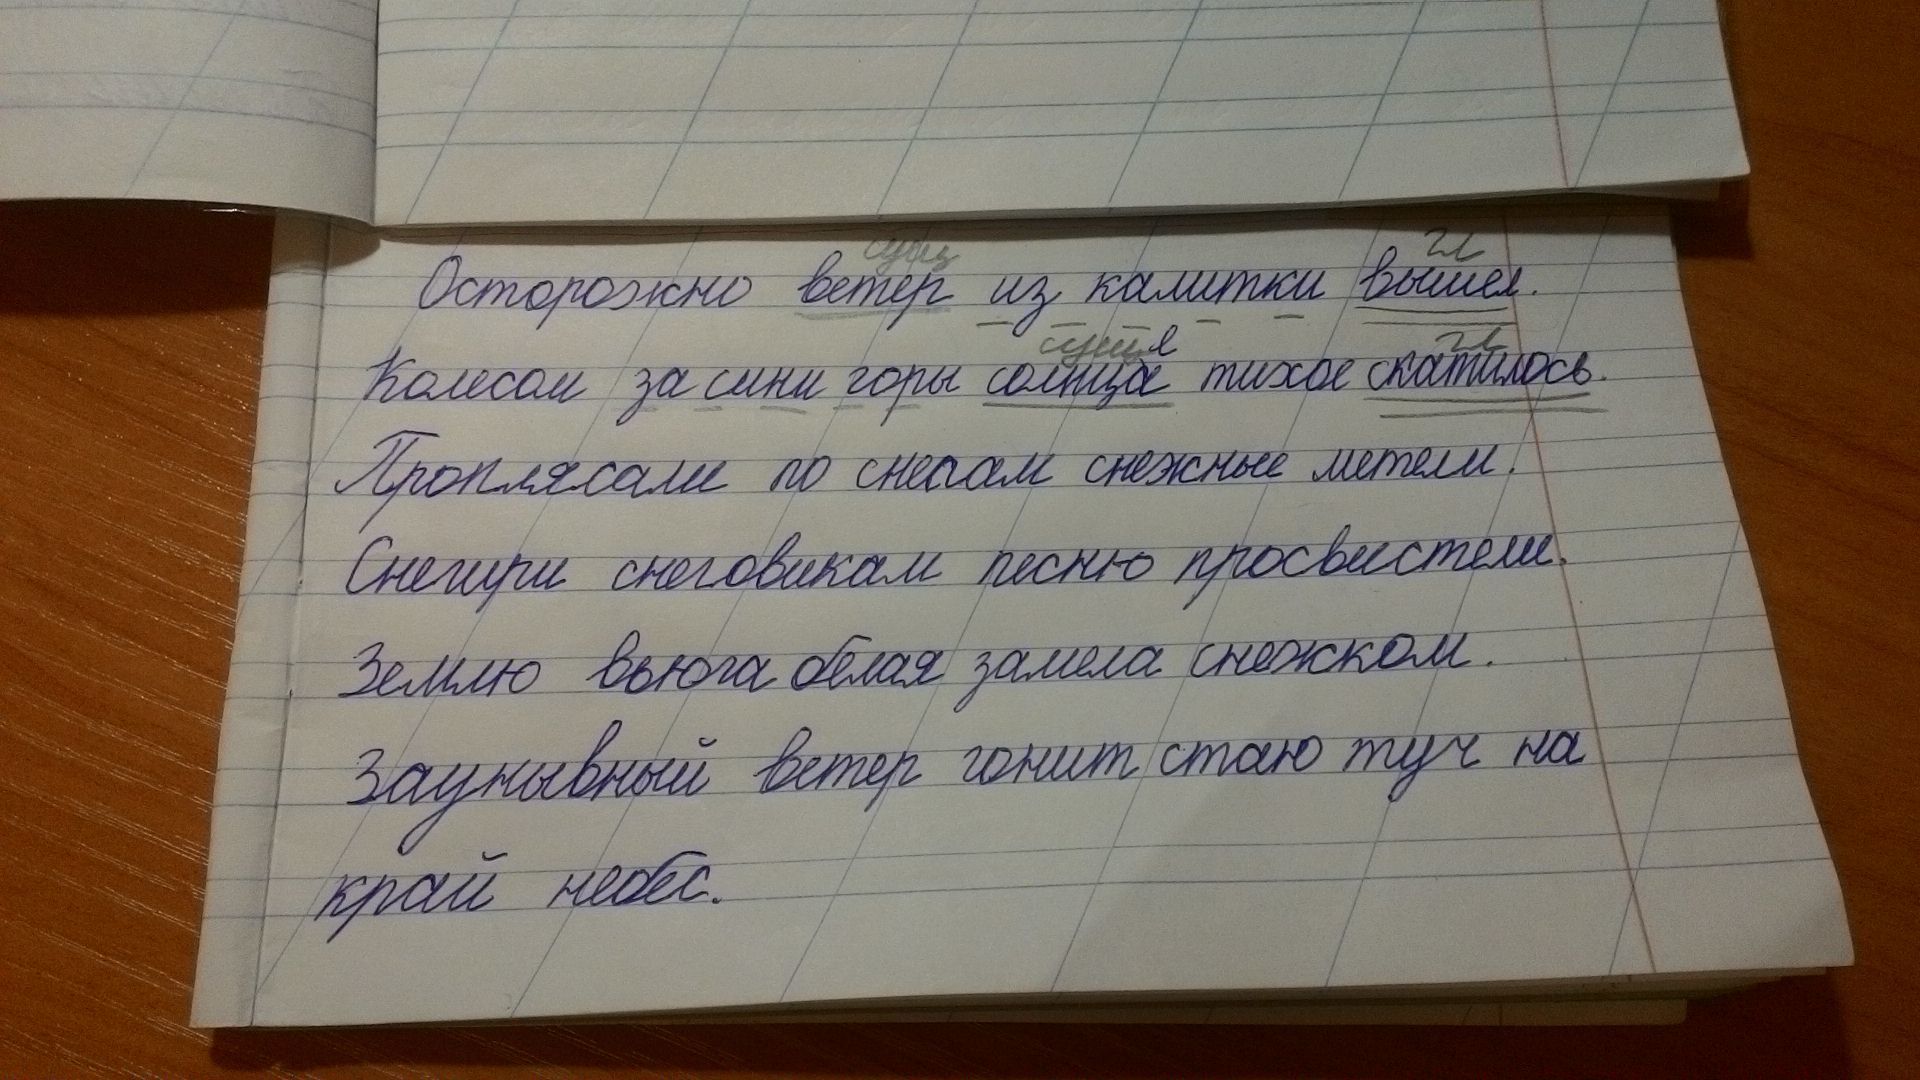 сущ гл
Осторожно ветер из калитки вышел.
сущ я гл
Колесом за сини горы солнца тихое скатилось.
Проплясали по снегам снежные метели.
Снегири снеговикам песню просвистели.
Землю вьюга белая замела снежком.
Заунывный ветер гонит стаю туч на
край небес.